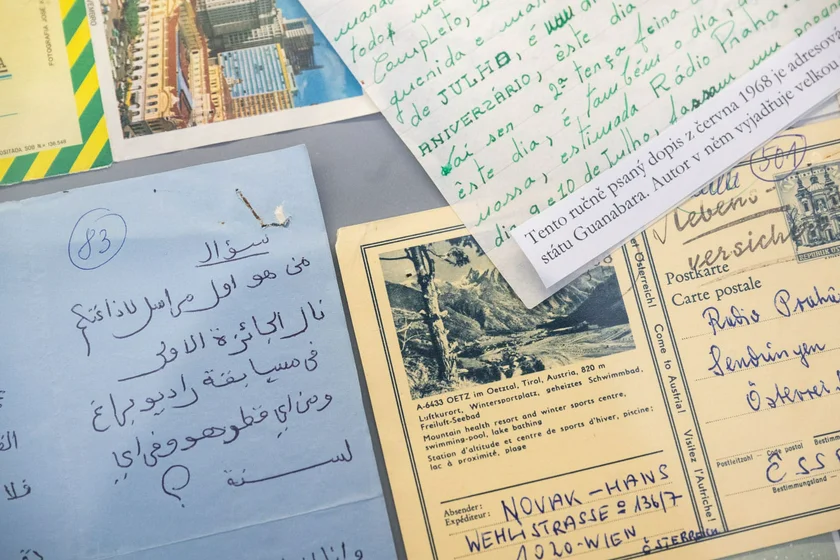 FOTOGRAFIA JOSÉ
todos
Completo, 2
querida
de JULHO, é um
ANIVERZÁRIO, êste dia
Vai ser a 2ª terça feira
êste dia, é também o dia
nossa, estimada Rádio Praha.
dia 9 e 10 de Julho, passam um
Tento ručně psaný dopis z června 1968 je adresová
státu Guanabara. Autor v něm vyjadřuje velkou
83
سؤال
من هو اول مراسل لاذاعتكم
نال الجائزة الاولى
في مسابقة راديو براغ
ومن اي قطر هو وفي اي
سنة ؟
A-6433 OETZ im Oetztal, Tirol, Austria, 820 m
Luftkurort, Wintersportplatz, geheiztes Schwimmbad,
Freiluft-Seebad
Mountain health resort and winter sports centre,
swimming-pool, lake bathing
Station d'altitude et centre de sports d'hiver, piscine;
lac à proximité, plage
Absender:
Expéditeur:
NOVAK-HANS
WEHLISTRASSE º 136/7
1020-WIEN ÖSTERREICH
Österreich! Come to Austria! Visitez l'Autriche!
501
Lebens-
versich
Postkarte
Carte postale
Radio Praha
Sendungen
Österreich
Postleitzahl – Code postal Bestimm
ČSS
Bestimmungsland